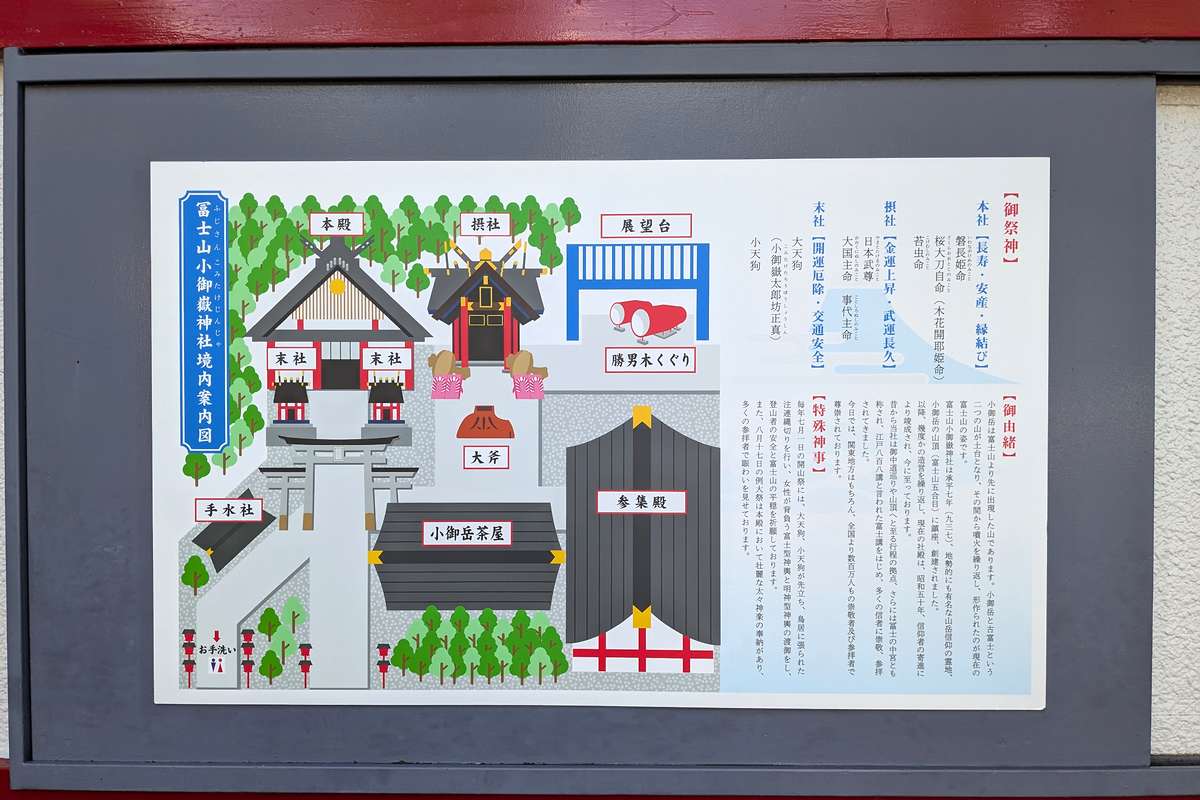 冨士山小御嶽神社境内案内図
ふじさんこみたけじんじゃ
本殿
摂社
展望台
末社
末社
勝男木くぐり
大斧
手水社
小御岳茶屋
参集殿
お手洗い
【御祭神】
本社【長寿・安産・縁結び】
磐長姫命
桜大刀自命（木花開耶姫命）
苔虫命
摂社【金運上昇・武運長久】
日本武尊
大国主命　事代主命
末社【開運厄除・交通安全】
大天狗
（小御嶽太郎坊正真）
小天狗
【御由緒】
小御岳は富士山より先に出現した山であります。小御岳と古富士という
二つの山が土台となり、その間から噴火を繰り返し、形作られたのが現在の
富士山の姿です。
冨士山小御嶽神社は承平七年（九三七）、地勢的にも有名な山岳信仰の霊地、
小御岳の山頂（富士山五合目）に鎮座、創建されました。
以降、幾度かの造営を繰り返し、現在の社殿は、昭和五十年、信仰者の寄進に
より竣成され、今に至っております。
昔から当社は御中道巡りや山頂へと至る行程の拠点、さらには富士の中宮とも
称され、江戸八百八講と言われた富士講をはじめ、多くの信者に崇敬、参拝
されてきました。
今日では、関東地方はもちろん、全国より数百万人もの崇敬者及び参拝者で
尊崇されております。
【特殊神事】
毎年七月一日の開山祭には、大天狗、小天狗が先立ち、鳥居に張られた
注連縄切りを行い、女性が背負う富士型神輿と明神型神輿の渡御をし、
登山者の安全と富士山の平穏を祈願しております。
また、八月十七日の例大祭は本殿において壮麗な太々神楽の奉納があり、
多くの参拝者で賑わいを見せております。